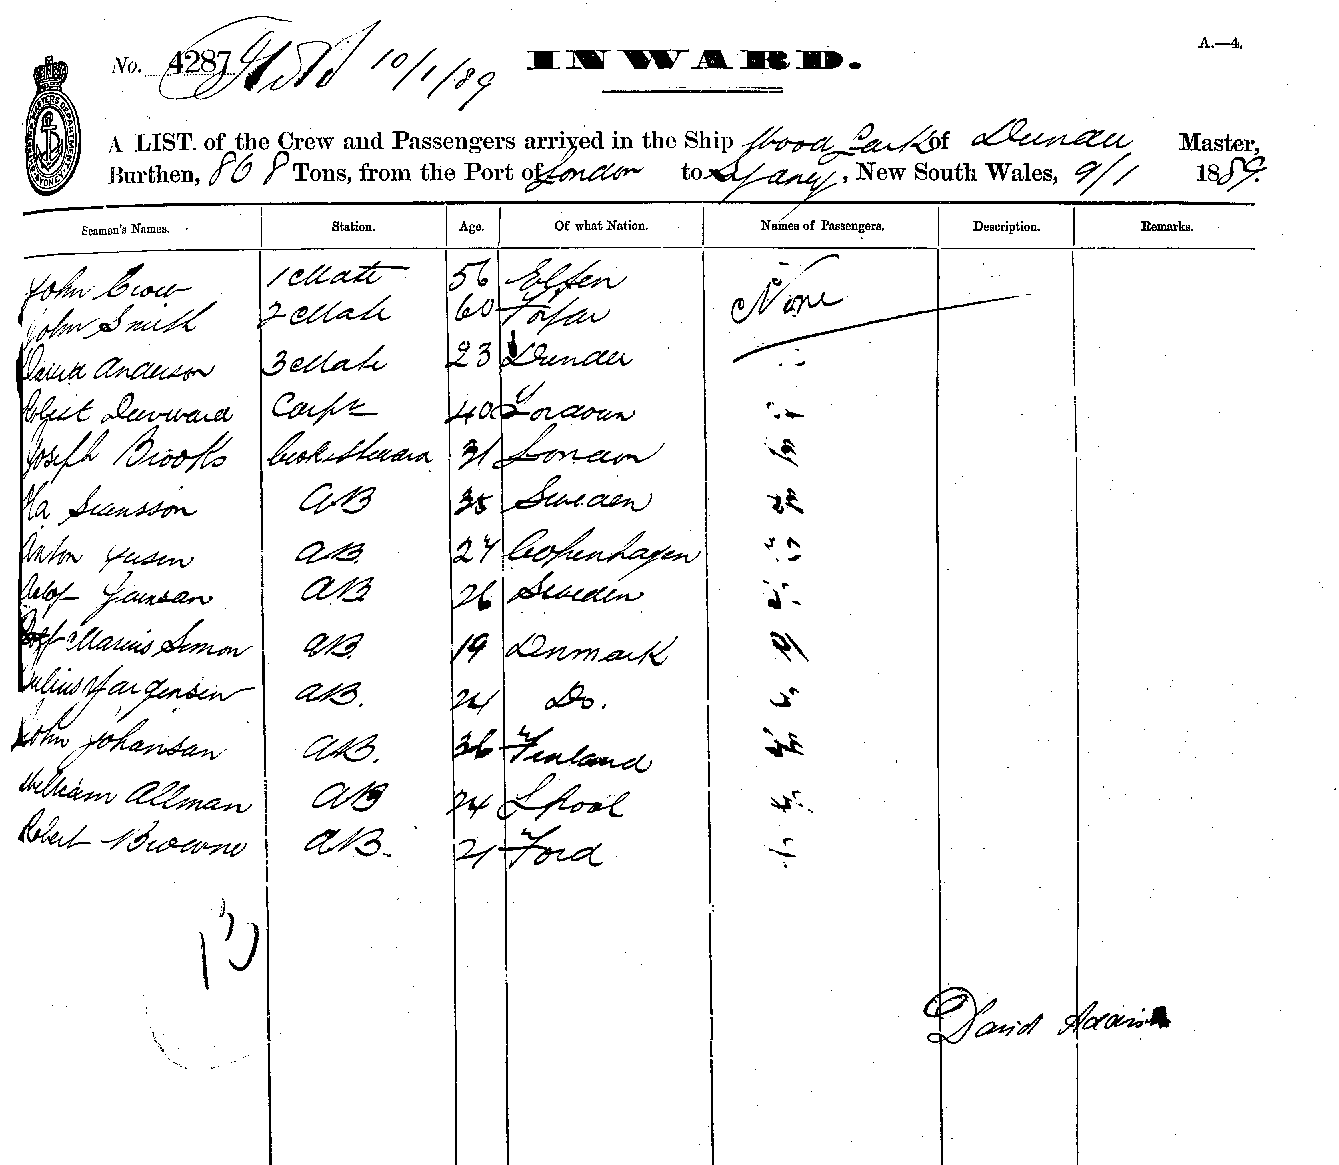 A.—4.
No. 4287 10/1/89 INWARD.
A LIST. of the Crew and Passengers arrived in the Ship Wood Lark of Dundee Master,
Burthen, 808 Tons, from the Port of London to Sydney, New South Wales, 9/1 1889.
Seamen's Names. Station. Age. Of what Nation. Names of Passengers. Description. Remarks.
John Crow 1 Mate 56 None
John Smith 2 Mate 60 Forfar
David Anderson 3 Mate 23 Dundee
Carptr 40 London
Joseph Brooks Cook & Steward 31 London
Ola Svensson AB 35 Sweden
Anton AB 27 Copenhagen
AB 26 Sweden
Marius Simon AB 19 Denmark
Julius Jargensen AB. 24 Do.
John Johansan AB. 36 Finland
William Allman AB 24 L'pool
Robert Browne AB. 21 Ford
13
David Adams